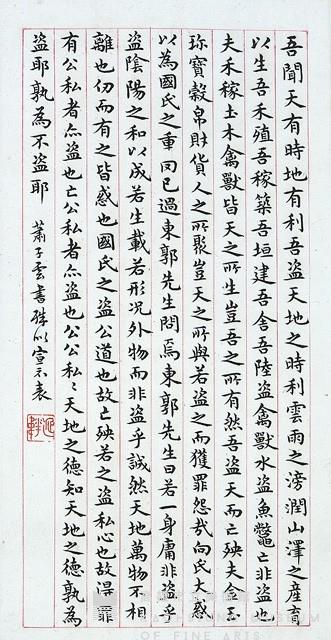 吾聞天有時地有利吾盜天地之時利雲雨之滂潤山澤之產育
以生吾禾殖吾稼築吾垣建吾舍吾陸盜禽獸水盜魚鱉亡非盜也
夫禾稼土木禽獸皆天之所生豈吾之所有然吾盜天而亡殃夫金玉
珍寶穀帛財貨人之所聚豈天之所與若盜之而獲罪怨哉向氏大惑
以為國氏之重罔已過東郭先生問焉東郭先生曰若一身庸非盜乎
盜陰陽之和以成若生載若形況外物而非盜乎誠然天地萬物不相
離也仞而有之皆惑也國氏之盜公道也故亡殃若之盜私心也故得罪
有公私者亦盜也亡公私者亦盜也公公私〻天地之德知天地之德孰為
盜耶孰為不盜耶
蕭子雲書殊似宣示表
OF FINE ARTS